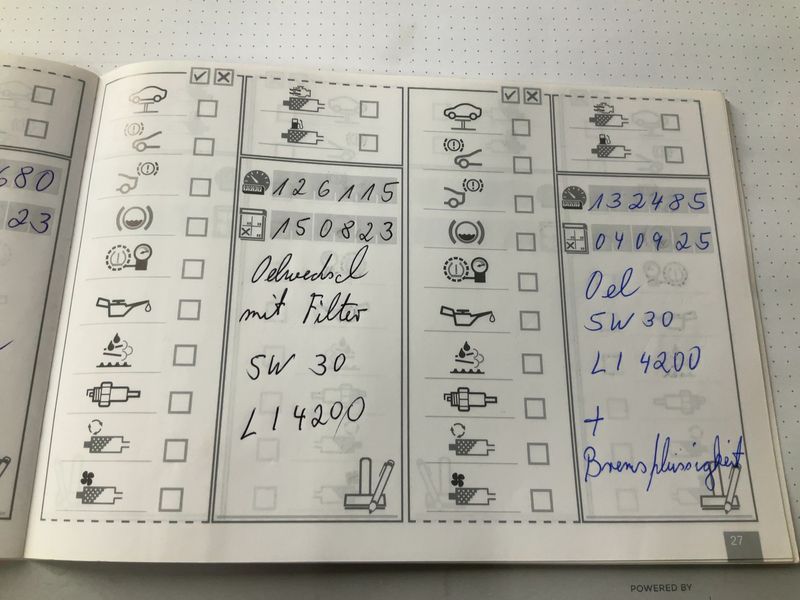 680
23
126115
150823
Oelwechsel
mit Filter
5W 30
LI 4200
132485
040925
Oel
5W 30
LI 4200
+
Bremsflüssigkeit
27
POWERED BY